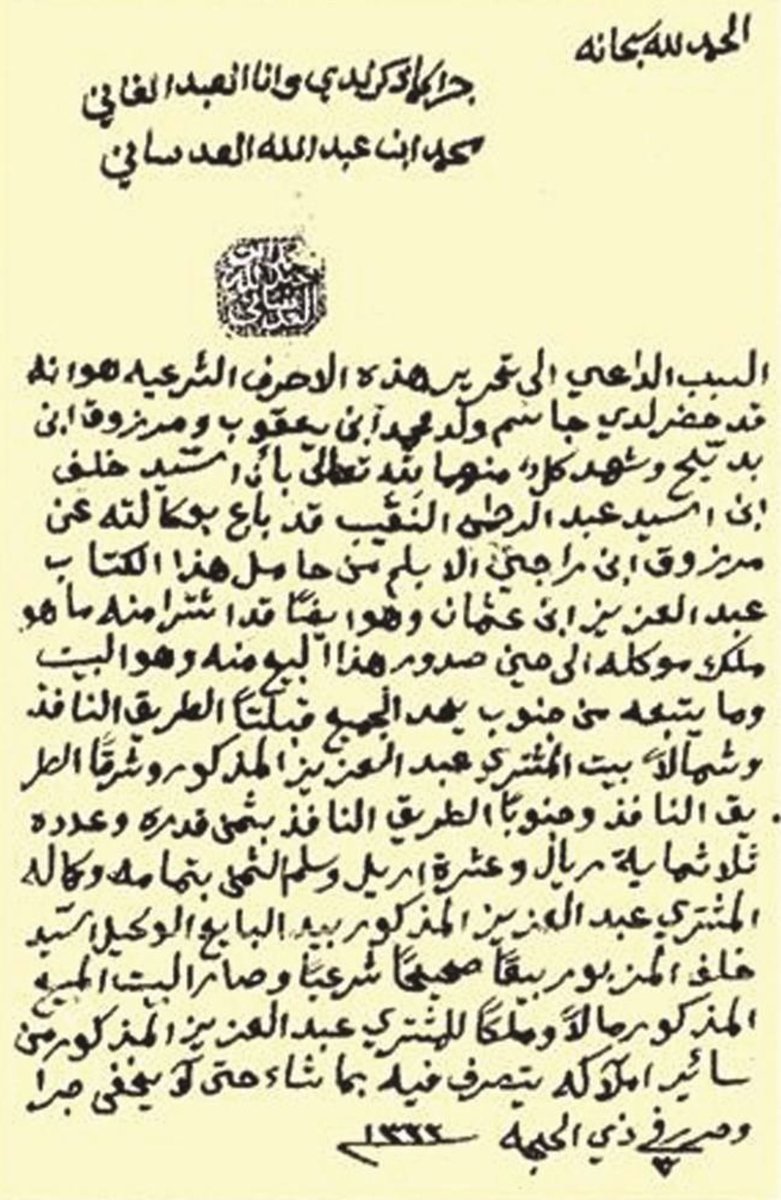 الحمد لله سبحانه
جرا كما ذكر لدي وانا العبد الفاني
محمد ابن عبد الله العدساني
السبب الداعي الى تحرير هذه الاحرف الشرعيه هو انه
قد حضر لدي جاسم ولد محمد ابن يعقوب ومرزوق ابن
بديّح وشهد كلٌ منهما لله تعالى بأن السيّد خلف
ابن السيد عبد الرحمن النقيب قد باع بوكالته عن
مرزوق ابن راجحي الابلم من حامل هذا الكتاب
عبد العزيز ابن عثمان وهو ايضًا قد اشترا منه ما هو
ملك موكله الى حين صدور هذا البيع منه وهو البيت
وما يتبعه من جنوب يحد الجميع قبلتًا الطريق النافذ
وشمالاً بيت المشتري عبد العزيز المذكور وشرقًا الطر
يق النافذ وجنوبًا الطريق النافذ بثمن قدره وعدده
ثلاثماية ريال وعشرة اريل وسلم الثمن بتمامه وكماله
المشتري عبد العزيز المذكور بيد البايع الوكيل السيّد
خلف المزبور بيعًا صحيحًا شرعيًا وصار البيت المبيع
المذكور مالاً وملكًا للمشتري عبد العزيز المذكور من
سائر املاكه يتصرف فيه بما شاء حتى لا يخفى جرا
وحرر في ذي الحجه ١٣٢٢